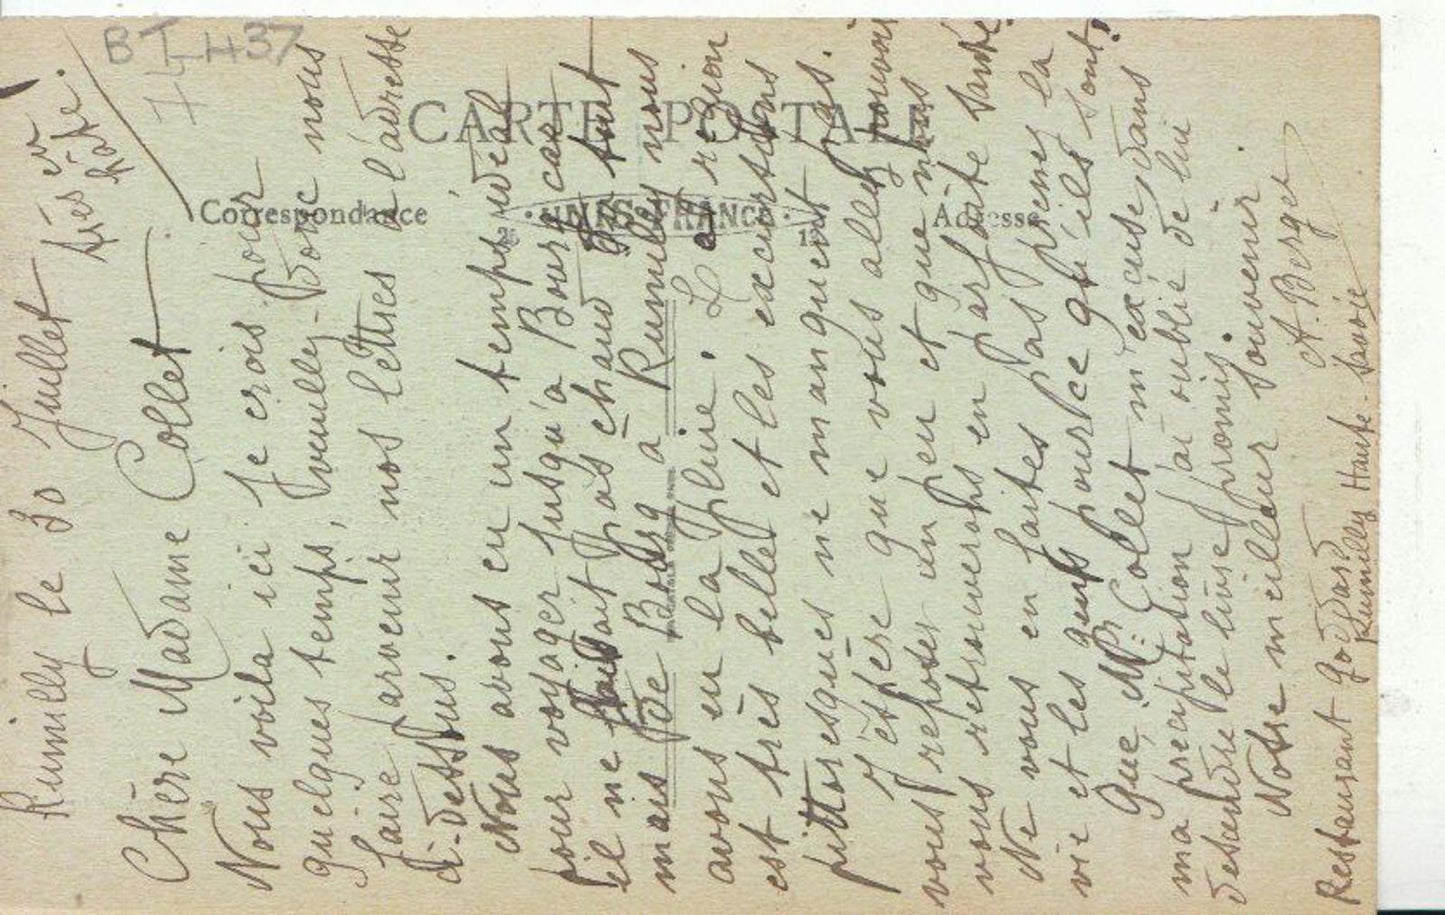 BT 437
74
CARTE POSTALE
Correspondance
Adresse
Rumilly le 30 Juillet
très en
hâte.
Chère Madame Collet
Nous voila ici je crois pour
quelques temps, veuillez-donc nous
faire parvenir nos lettres a l'adresse
ci-dessous.
Nous avons eu un temps idéal
pour voyager jusqu'a Bourg car
il ne faisait pas chaud du tout
mais de Bourg à Rumilly nous
avons eu la pluie. La région
est très belle et les excursions
pittoresques ne manquent pas.
J'éspère que vous allez pouvoir
vous reposer un peu et que nous
vous retrouverons en parfaite santé
Ne vous en faites pas prenez la
vie et les gens pour ce qu'ils sont.
Que Mr Collet m'éxcuse, dans
ma précipitation j'ai oublié de lui
descendre le livre promis.
Notre meilleur souvenir.
A. Berger
Restaurant Goddard
Rumilly Haute-Savoie